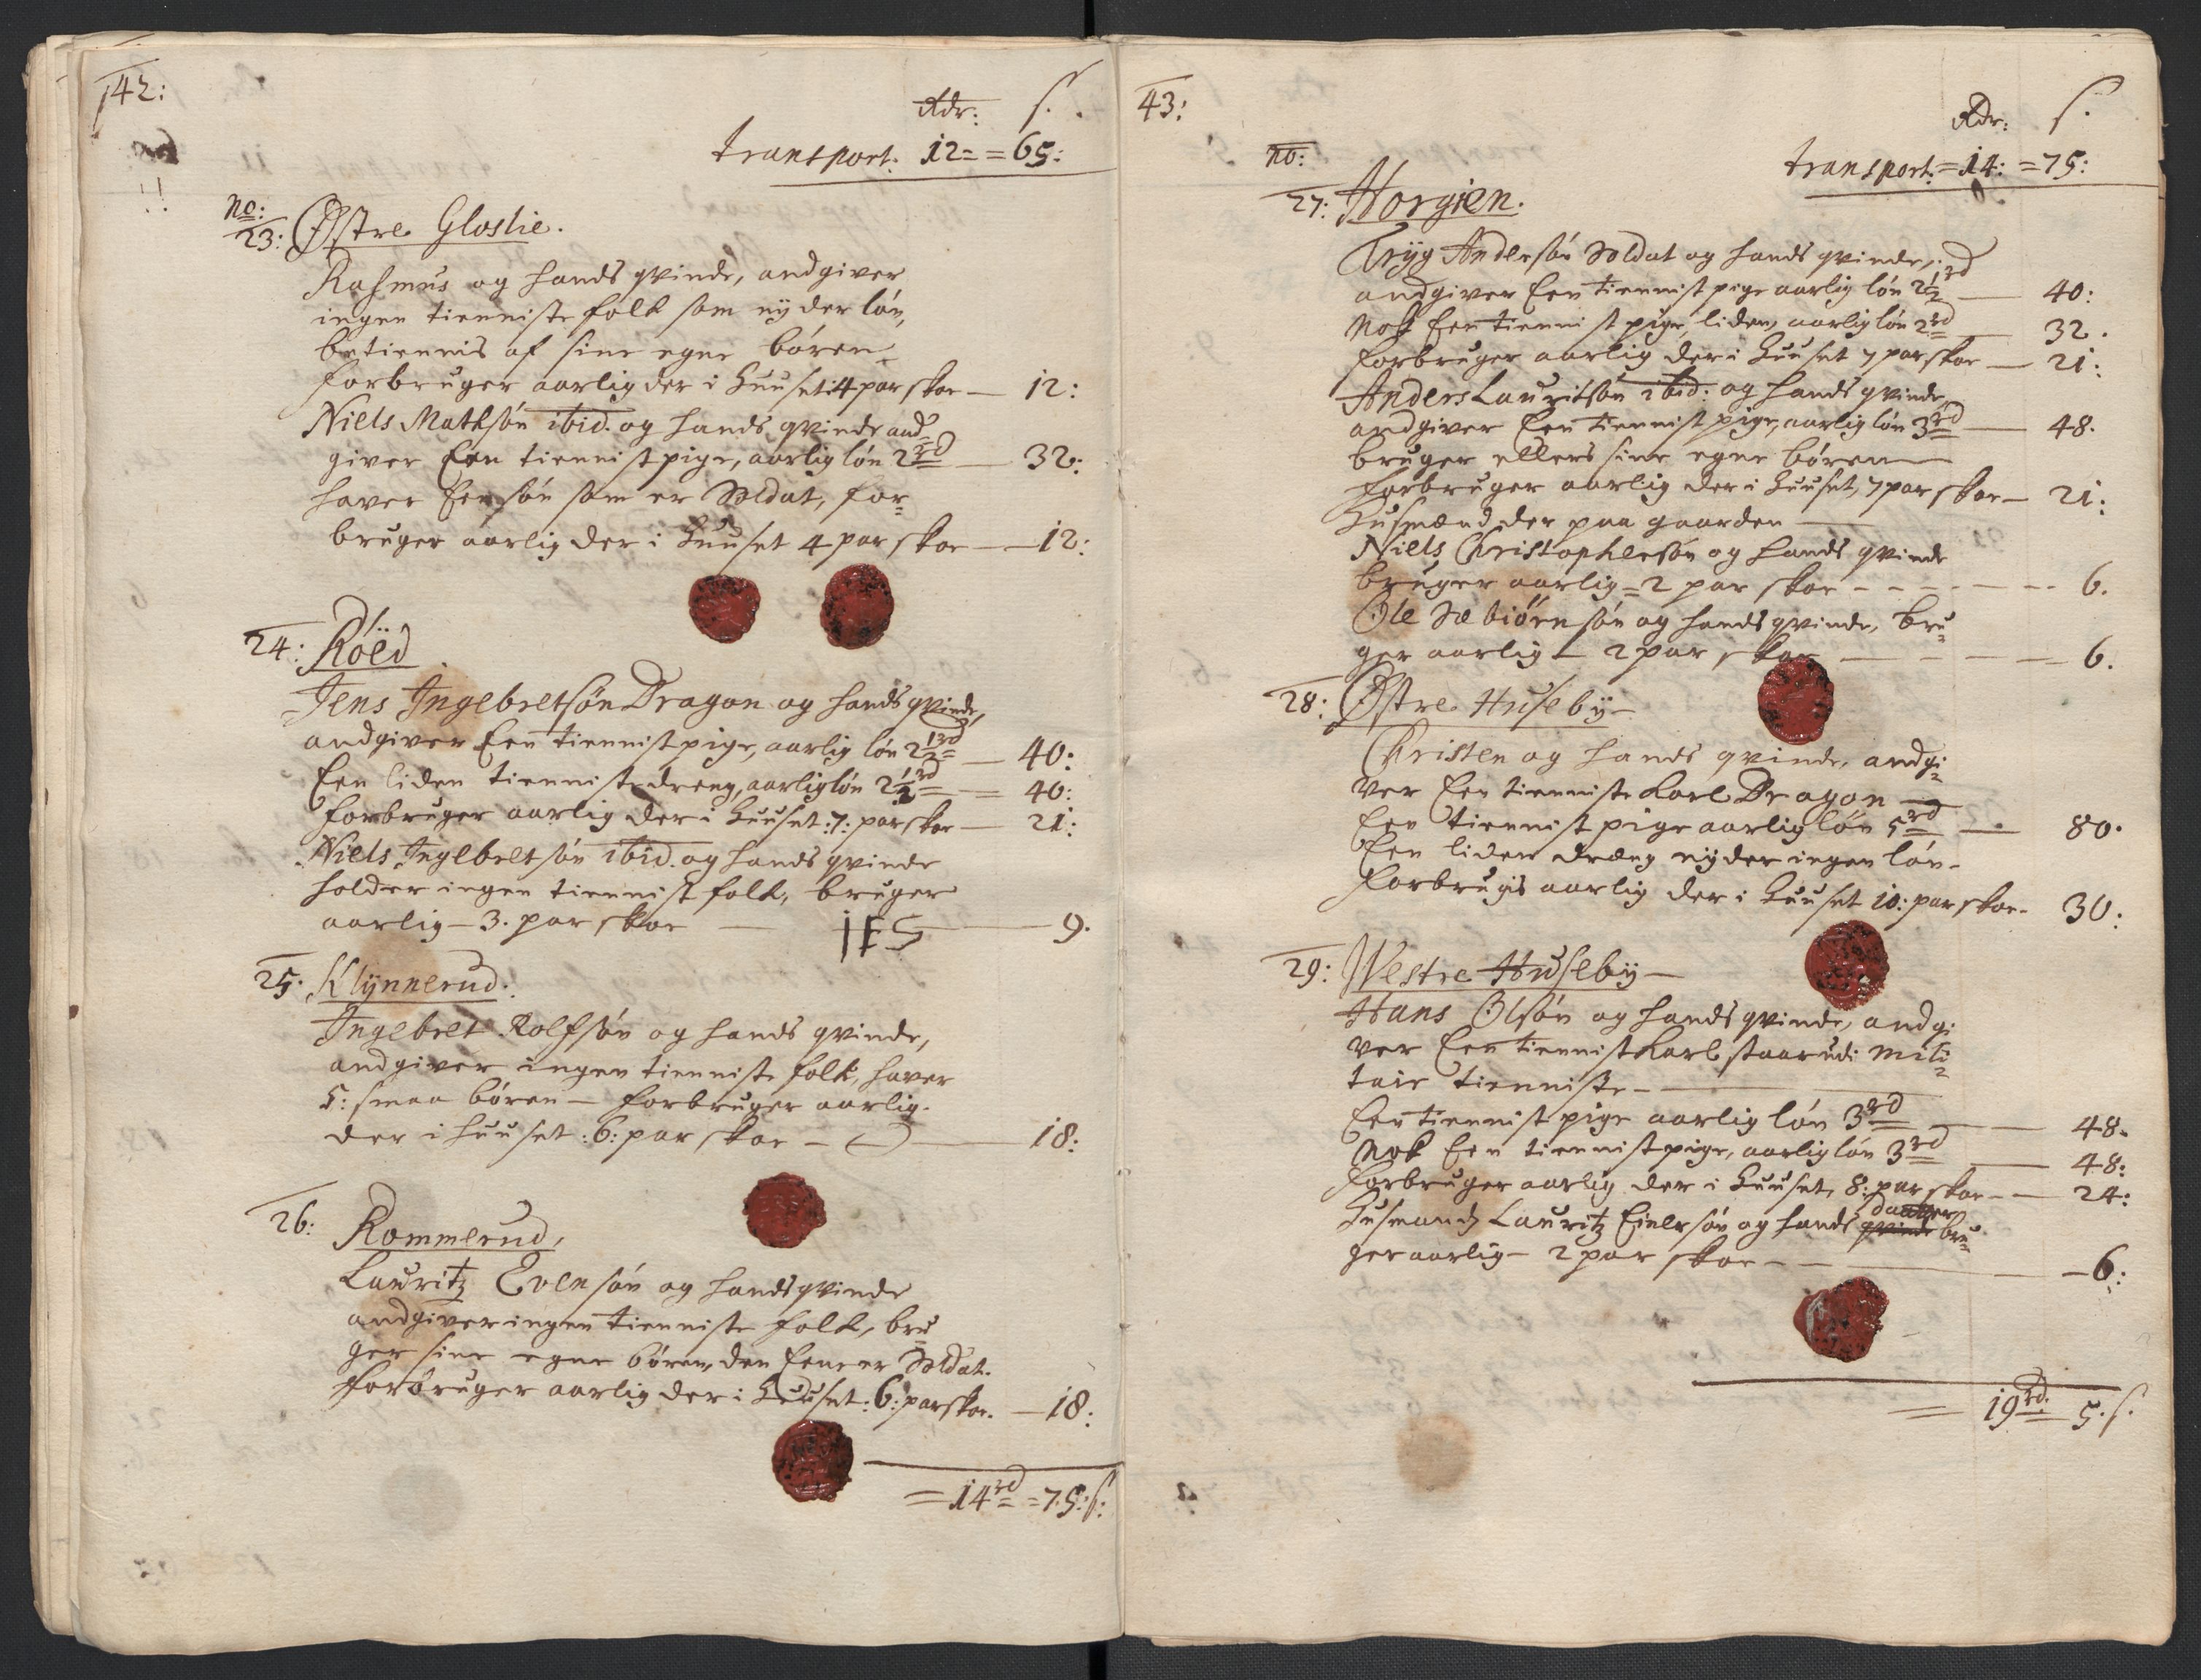 142:
Rdr: s.
transport: 12: = 65:
No:
23: Østre Gloslie.
Rasmus og hands qvinde, andgiver
ingen tienniste folk som nyder løn,
betiennis af sine egne børen
forbruger aarlig der i Huuset: 4 par skoe — 12:
Niels Mathsøn ibid. og hands qvinde and=
giver Een tiennistpige, aarlig løn 2 rd — 32:
haver Een søn som er Soldat, for=
bruger aarlig der i Huuset 4 par skoe — 12:
24: Röed
Jens Ingebretsøn Dragon og hands qvinde,
andgiver Een tiennistpige, aarlig løn 2 1/2 rd — 40:
Een liden tiennistedreng, aarlig løn 2 1/2 rd = 40:
forbruger aarlig der i Huuset: 7: par skoe — 21:
Niels Ingebretsøn ibid. og hands qvinde
holder ingen tiennist folk, bruger
aarlig — 3. par skoe — IES — 9.
25. Klynnerud.
Ingebret Rolfsøn og hands qvinde,
andgiver ingen tienniste folk, haver
5: smaa børen — forbruger aarlig
der i huuset: 6: par skoe — 18:
26: Rommerud,
Lauritz Evensøn og hands qvinde
andgiver ingen tienniste folk, bru
ger sine egne børen, den Eene er Soldat.
forbruger aarlig der i Huuset: 6: par skoe. — 18:
= 14 rd = 75: s:
43:
Rdr: s.
transport: = 14: = 75:
No:
27: Horgien.
Tryg Andersøn Soldat og hands qvinde,
andgiver Een tiennist pige aarlig løn 2 1/2 rd — 40:
Nok Een tiennist pige, liden, aarlig løn 2 rd — 32.
forbruger aarlig der i Huuset 7 par skoe — 21:
Anders Lauritsøn ibid: og hands qvinde,
andgiver Een tiennist pige, aarlig løn 3 rd — 48.
bruger ellers sine egne børen —
forbruger aarlig der i Huuset, 7 par skoe — 21:
Husmænd der paa gaarden —
Niels Christophersøn og hands qvinde
bruger aarlig = 2 par skoe — 6.
Ole Sæbiørnsøn og hands qvinde, bru=
ger aarlig — 2 par skoe — 6.
28: Østre Huseby —
Christen og hands qvinde, andgi=
ver Een tienniste Karl Dragon —
Een tiennist pige aarlig løn 5 rd — 80.
Een liden dræng nyder ingen løn —
forbrugis aarlig der i Huuset 10: par skoe. 30:
29: Westre Huseby —
Hans Olsøn og hands qvinde, andgi
ver Een tiennist Karl staar udi mili=
tair tienniste —
Een tiennist pige aarlig løn 3 rd — 48.
Nok Een tiennistpige, aarlig løn 3 rd — 48:
forbruger aarlig der i Huuset, 8: par skoe — 24:
Husmand Lauritz Einersøn og hands qvinde daatter bru=
ger aarlig — 2 par skoe — 6:
= 19 rd: 5. s.